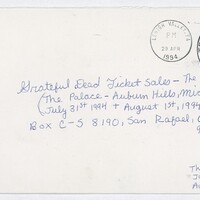 LEHIGH VALLEY, PA
PM
29 APR
1994
Grateful Dead Ticket Sales - The
(The Palace - Auburn Hills, Mic
July 31st 1994 + August 1st, 199
Box C-S 8190, San Rafael, C
Th